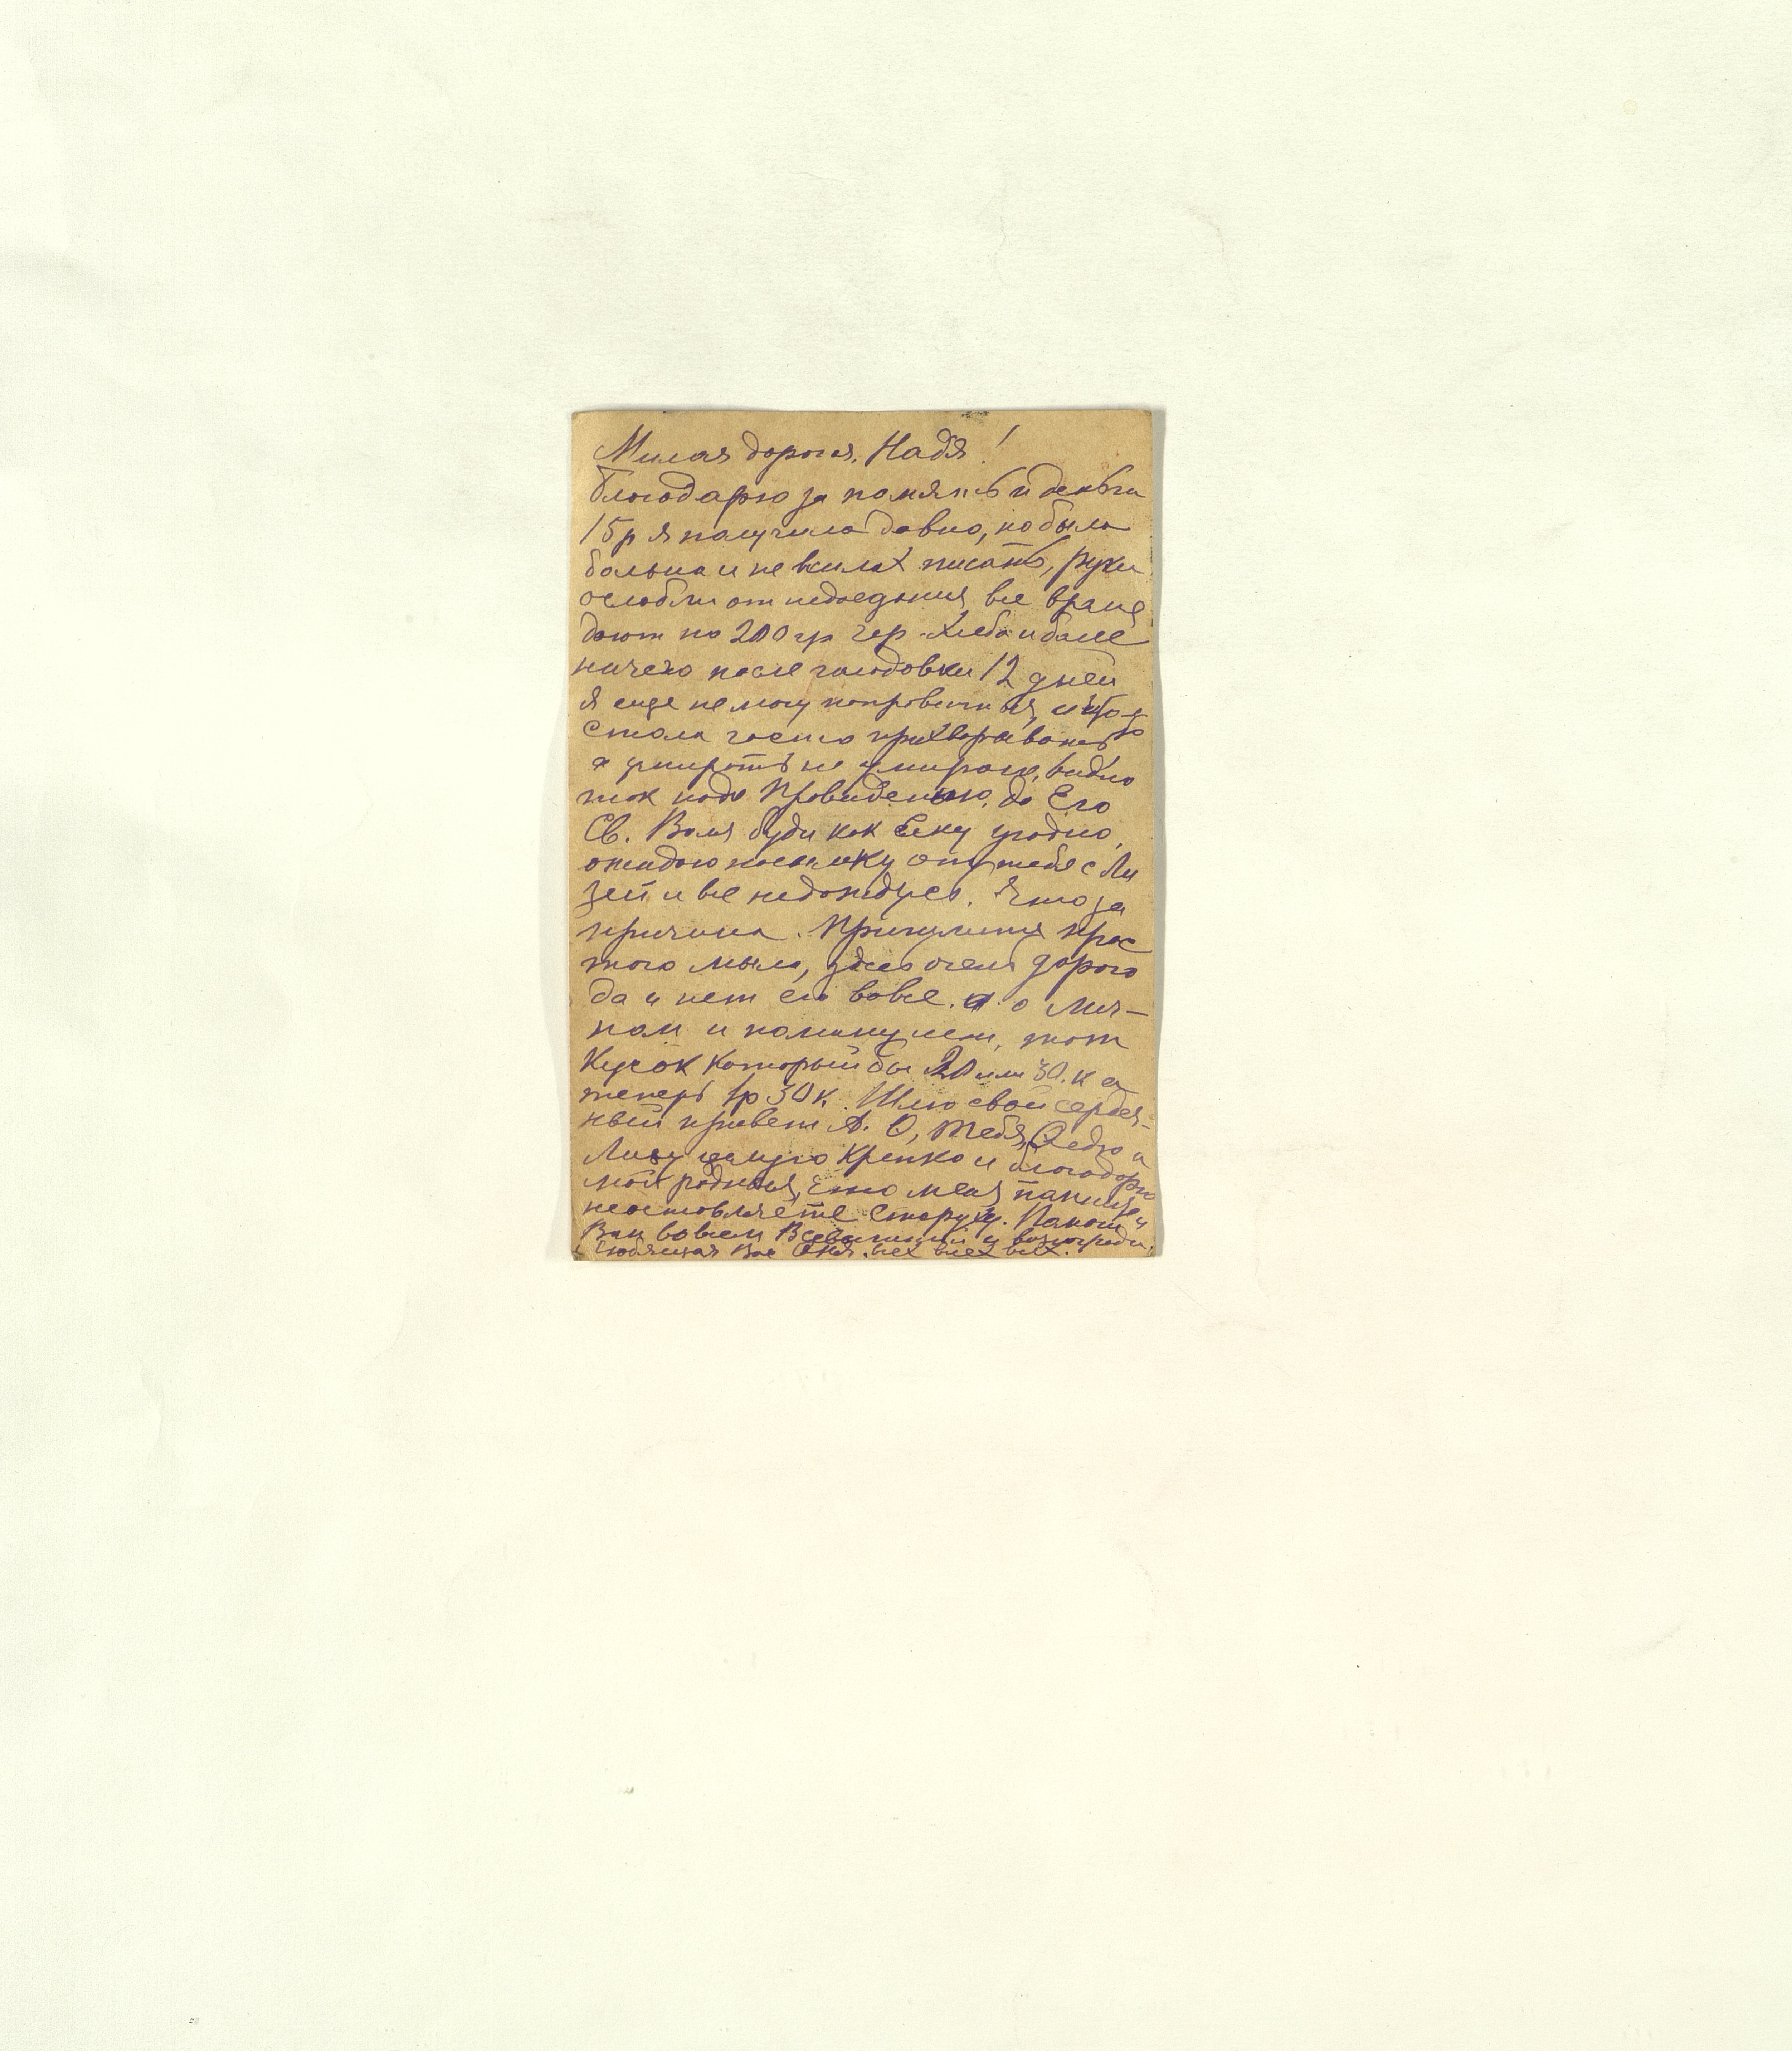 Милая дорогая. Надя!
благодарю за память и деньги
15 р я получила давно, но была
больна и не всилах писать, руки
ослабли от недоедания, все время
дают по 200 гр чер. хлеба и более
ничего после голодовки 12 дней
я еще не могу поправиться,
стала часто прихварывать
а умирать не умираю, видно
так надо Провидению, да Его
Св. Воля буди как Ему угодно,
ожидаю посылку от тебя с Ли
зей и все недождусь. Что за
причина. Пришлите прос
того мыла, здесь очень дорого
да и нет его вовсе. о Мич-
ном и поминулем, тот
Кусок который бы 20 или 30. к а
теперь 1р 30 к. Шлю свой сердеч-
ный привет А. О, Тебя, Федю и
Лизу целую крепко и благодарю
мои родныя, что меня
неоставляете старуху. Помоги
Вам вовсем Всевышний и вознагради.
Любящая Вас всех всех всех.